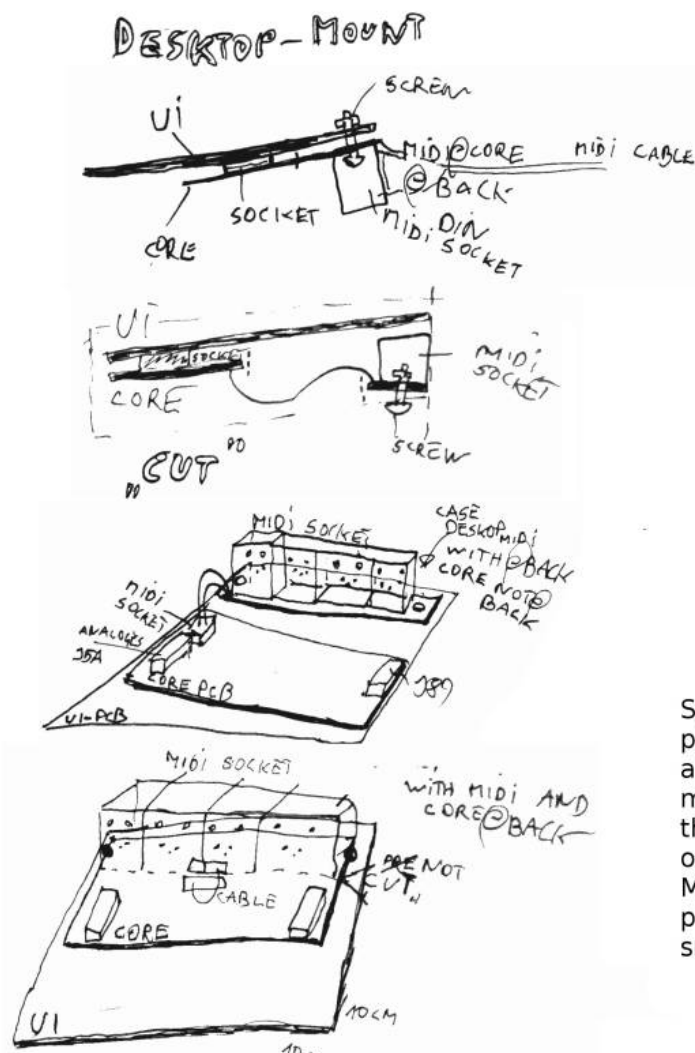 DESKTOP-MOUNT
SCREW
Ui
MIDI@CORE
MIDI CABLE
@ BACK
SOCKET
CORE
MIDI DIN
SOCKET
Ui
SOCKET
MIDI
SOCKET
CORE
SCREW
"CUT"
MIDI SOCKET
CASE
DESKOP MIDI
WITH @BACK
CORE NOT@
BACK
MIDI
SOCKET
ANALOGES
J5A
CORE PCB
J89
UI-PCB
MIDI SOCKET
WITH MIDI AND
CORE@BACK
NOT
CUT"
CABLE
CORE
UI
10CM
10
S
p
a
m
th
o
M
p
s